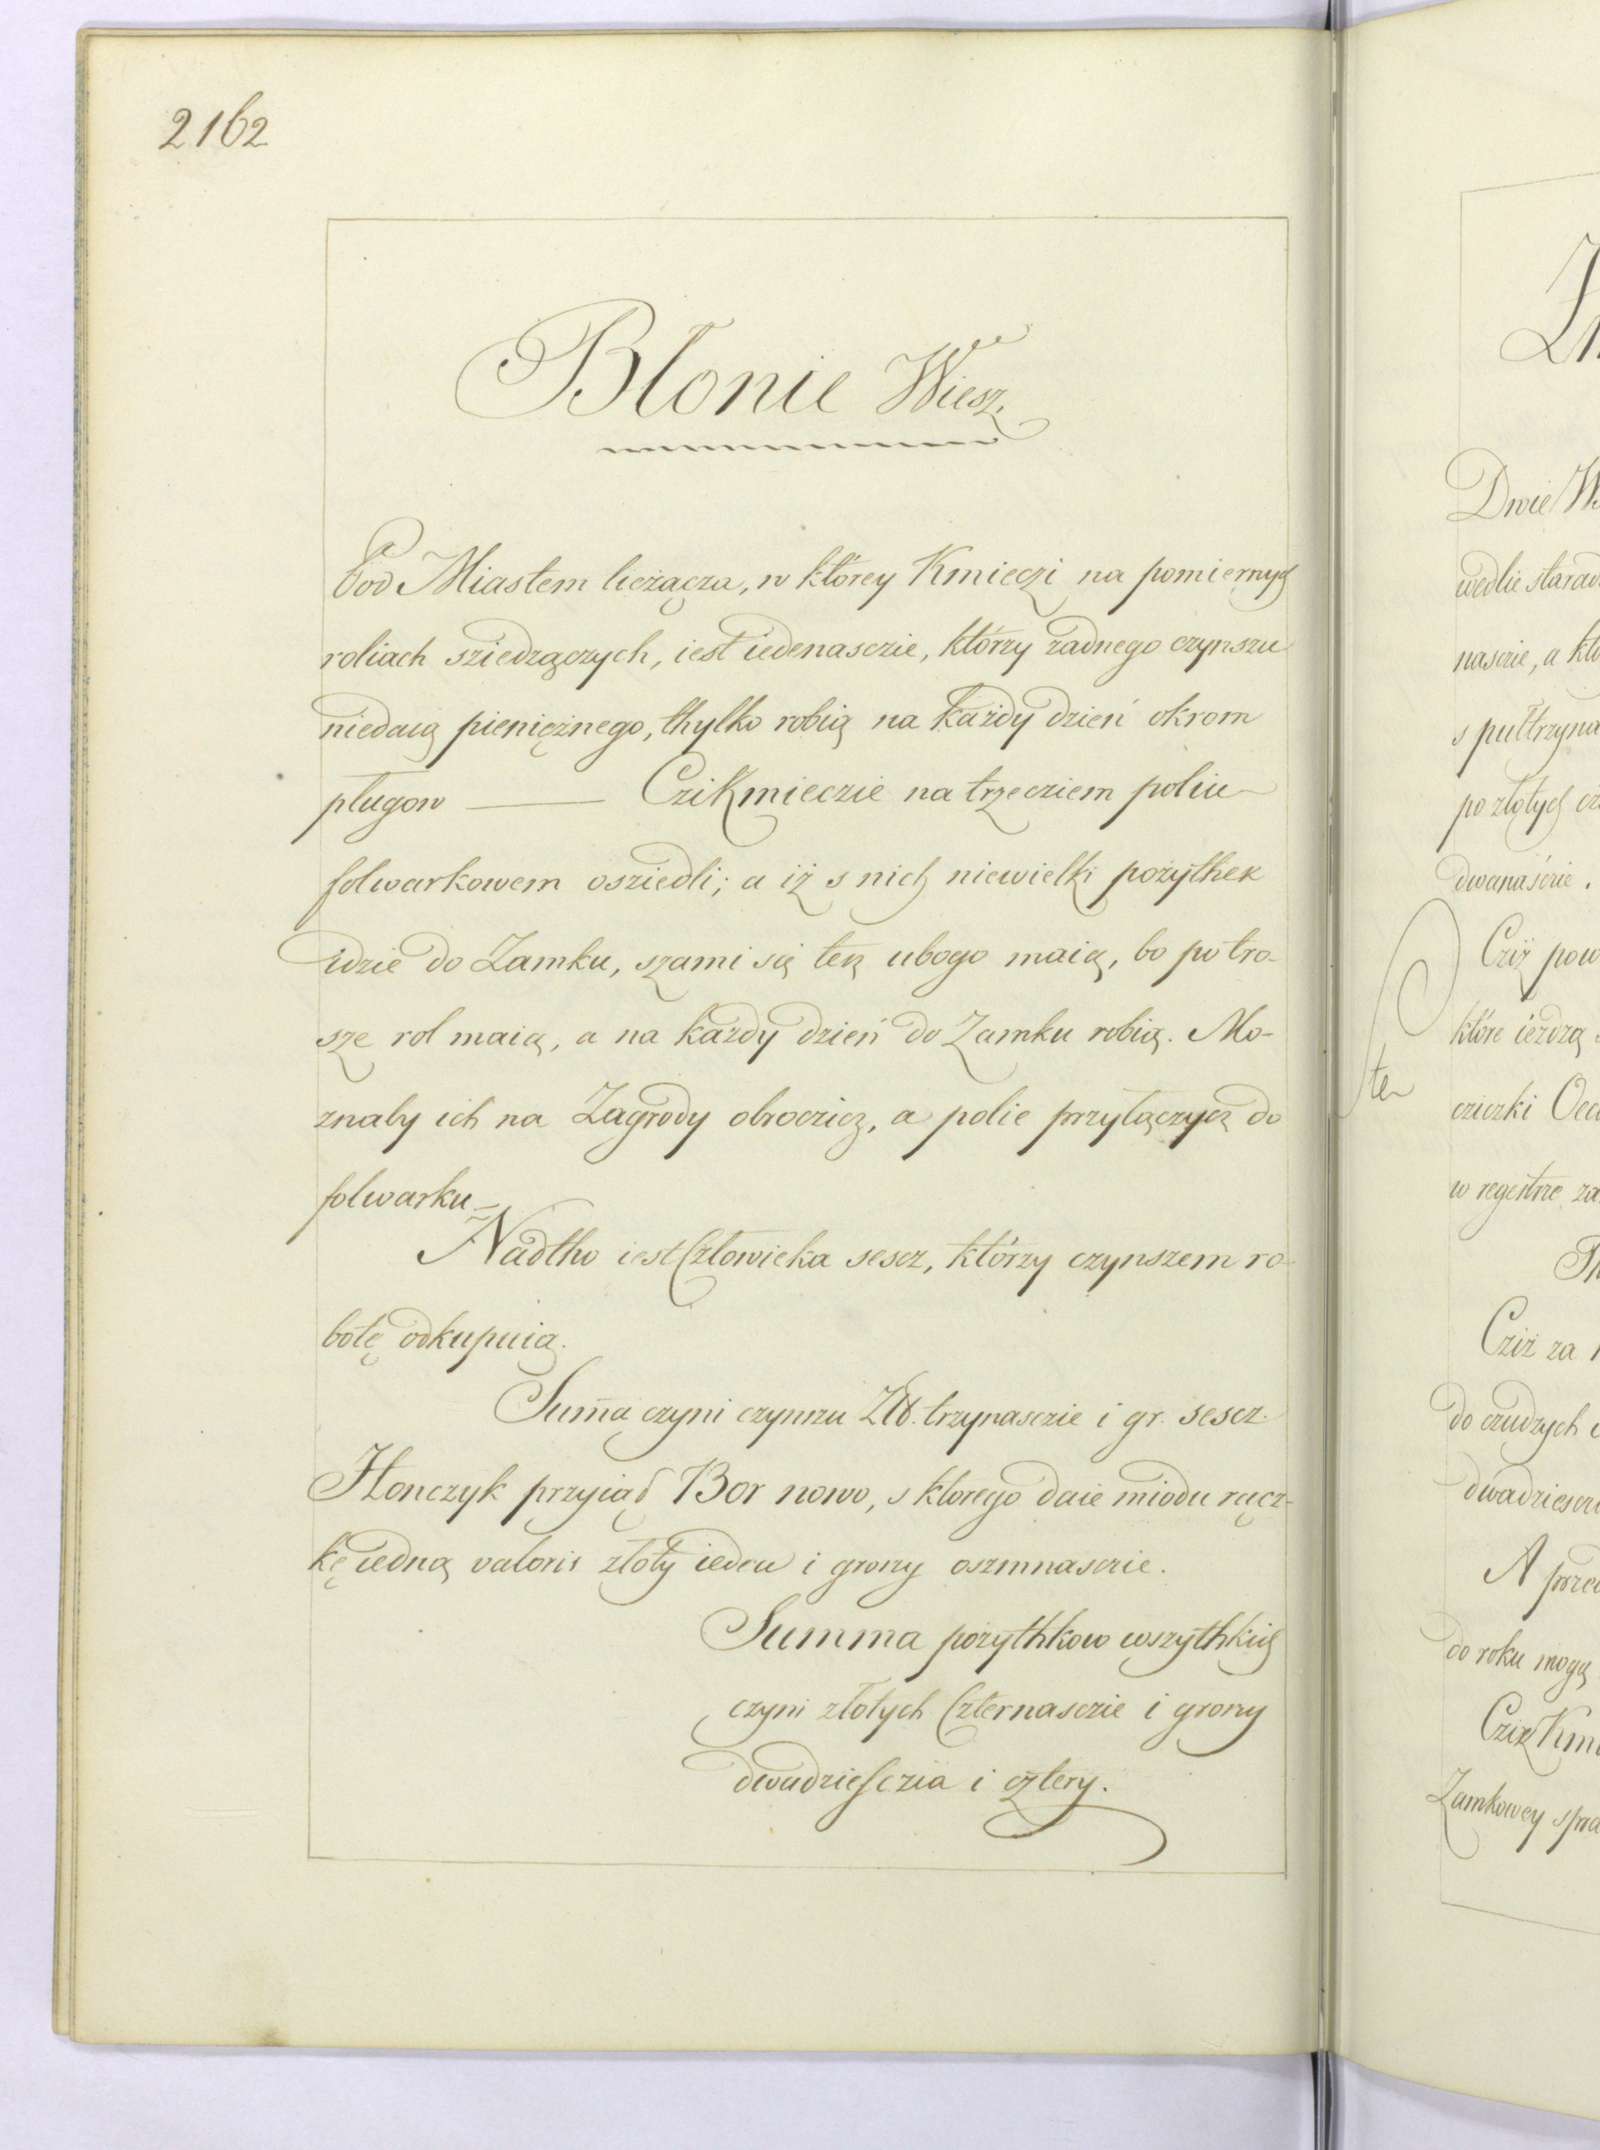 2162
Błonie Wiesz.
Pod Miastem lieżącza, w którey Kmieczi na pomiernych
roliach sziedzączych, iest iedenasczie, którzy żadnego czynszu
niedaią pieniężnego, thylko robią na każdy dzień okrom
pługow ——— Czi Kmieczie na trzecziem poliu
folwarkowem osziedli; a iż s nich niewielki pożythek
idzie do Zamku, szami się tesz ubogo maią, bo po tro-
sze rol maią, a na każdy dzień do Zamku robią. Mo-
znaby ich na Zagrody obroczicz, a polie przyłączycz do
folwarku =
Nadtho iest Człowieka sescz, którzy czynszem ro-
botę odkupuią.
Sum̄a czyni czynszu Zł. trzynasczie i gr. sescz.
Honczyk przyiął Bor nowo, s ktorego daie miodu rącz-
kę iedną valoris złoty ieden i groszy oszmnasczie.
Summa pożythkow wszythkich
czyni złotych Czternasczie i groszy
dwadziesczia i cztery.
Dwie
wedlie
nasczie, a
po złotych
dwanaście.
Cziż
które ieżdżą
ten
cziczki
w regestrze
Cziż za
do czudzych
do roku mogą
Zamkowey